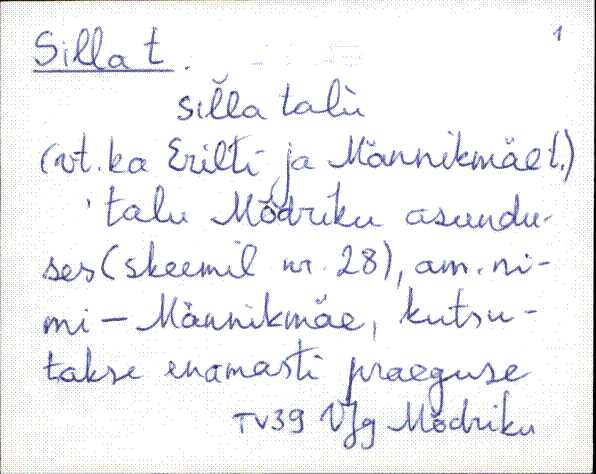 1
Silla t.
sil̆la talù
(vt. ka Erilti ja Männikmäe t.)
talu Mõdriku asundu-
ses (skeemil nr. 28), am. ni-
mi - Männikmäe, kutsu-
takse enamasti praeguse
TV39 VJg Mõdriku